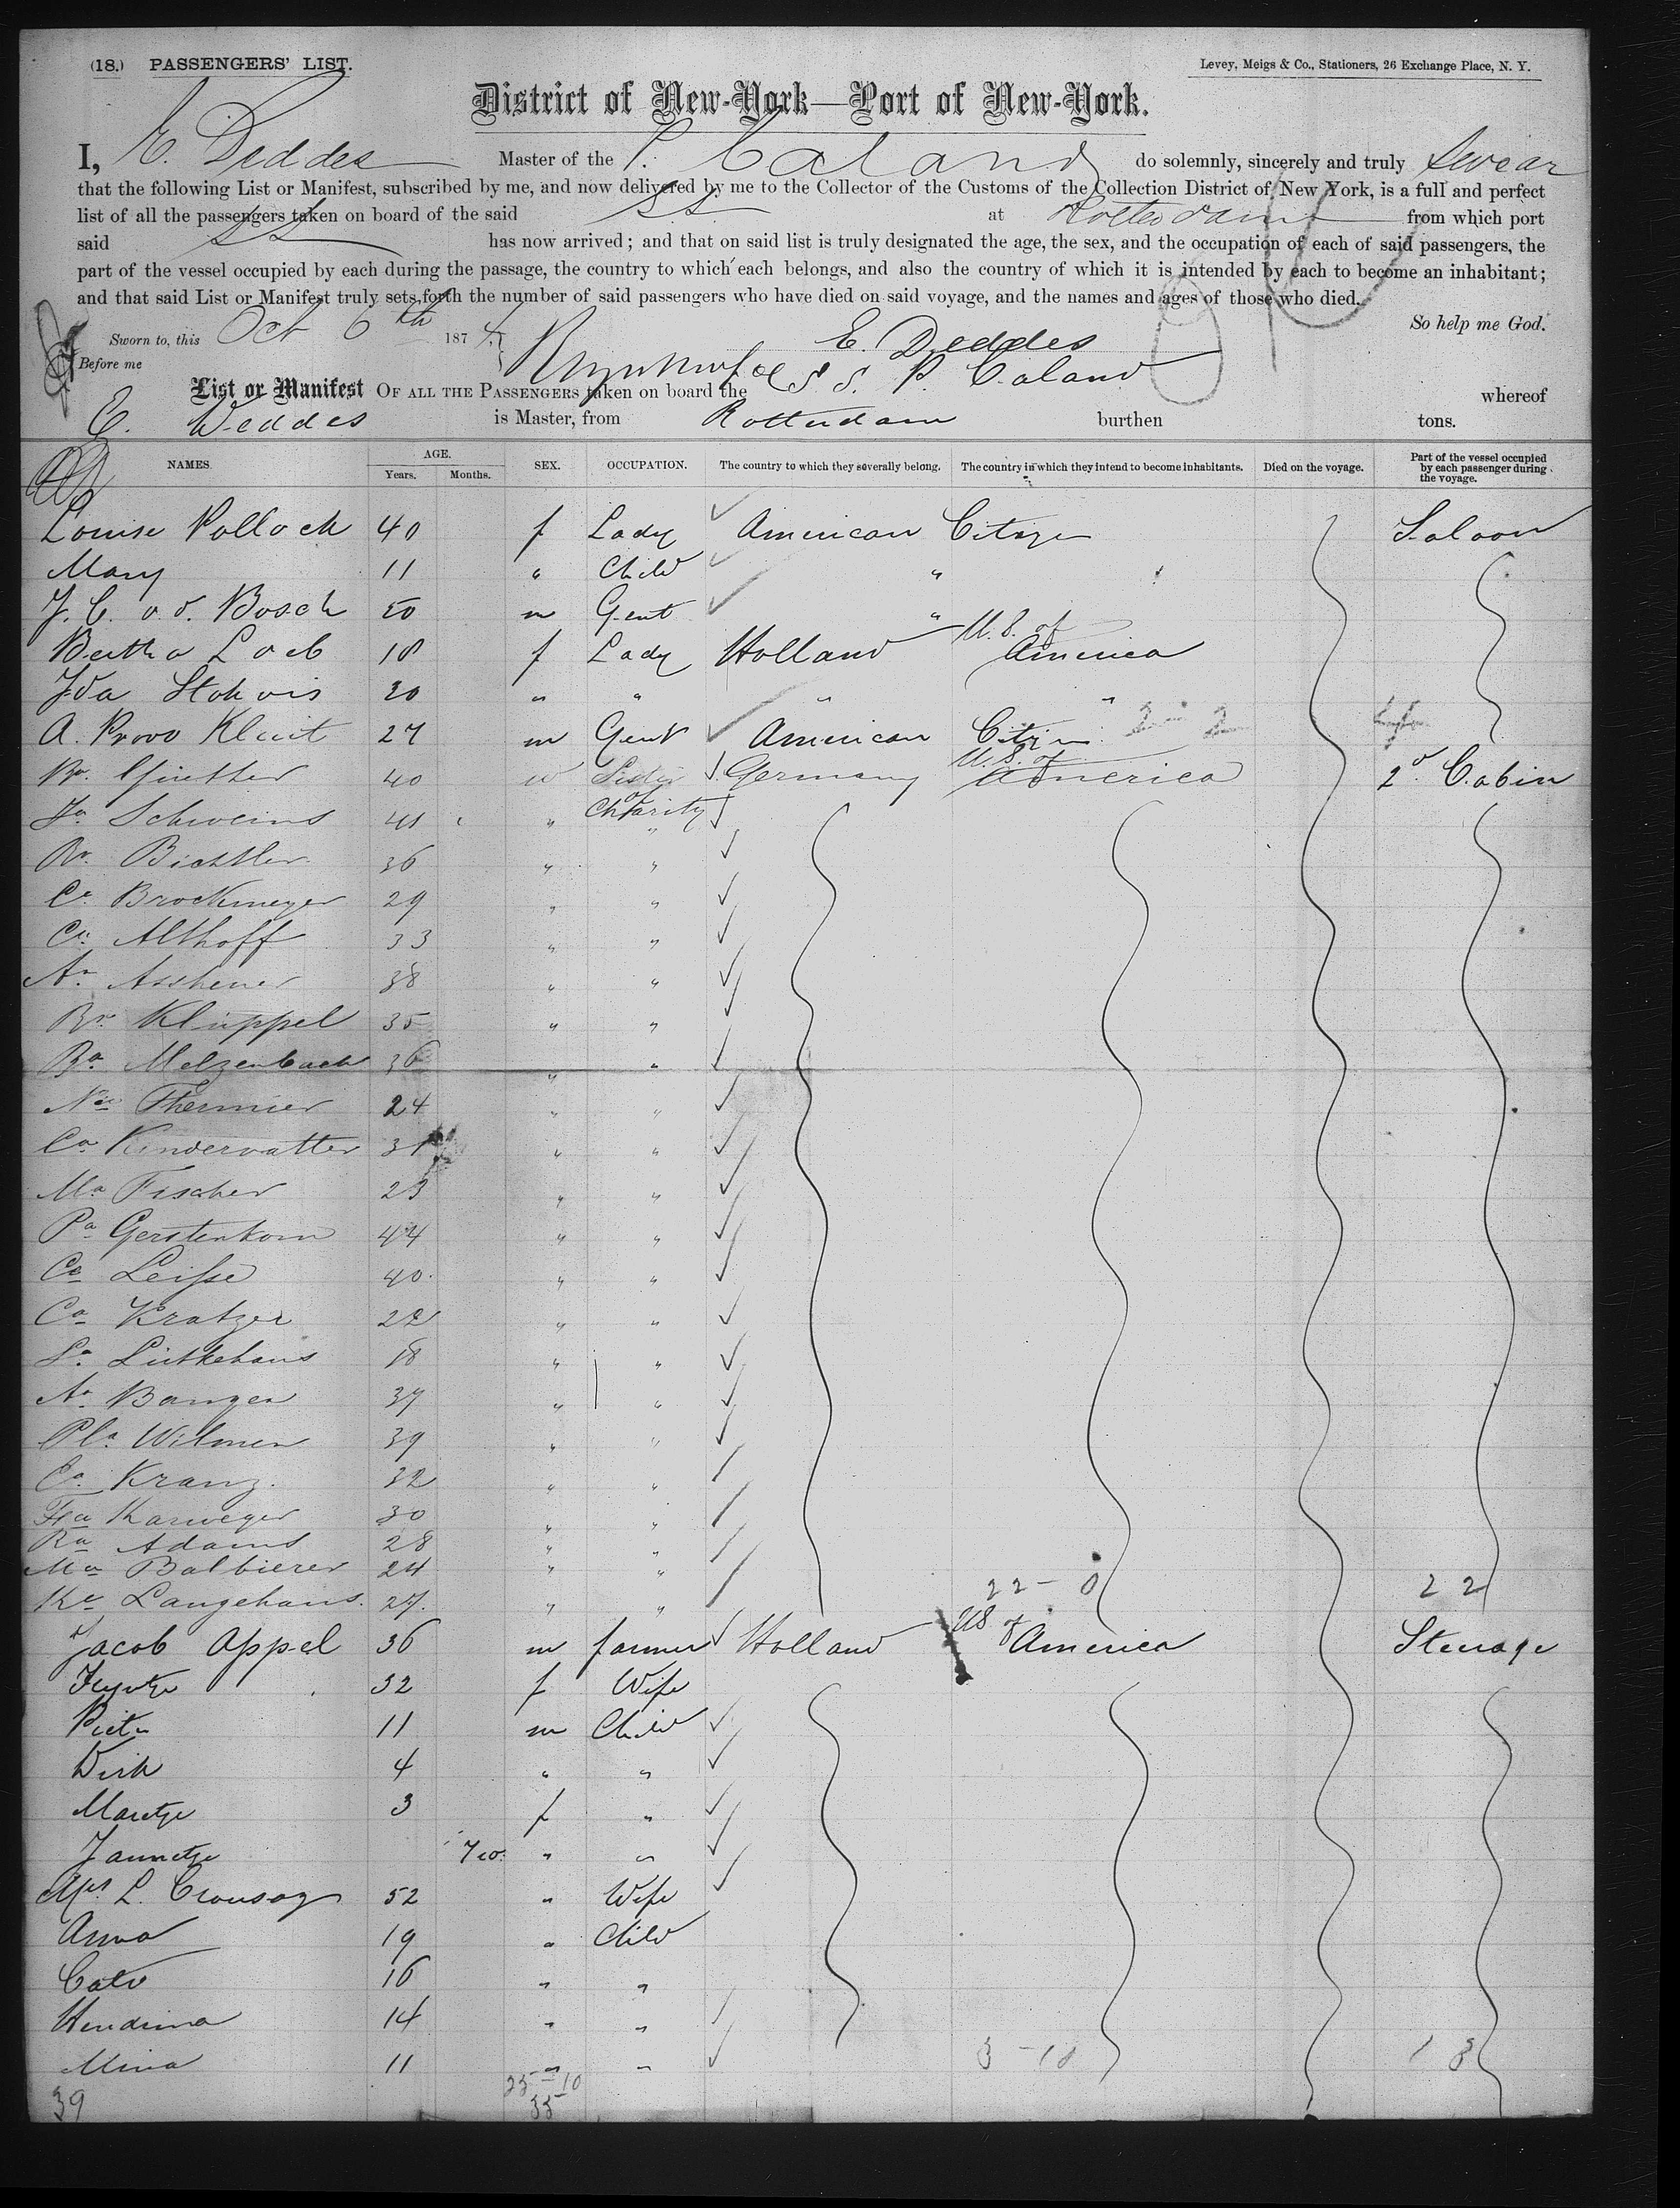 (18.) PASSENGERS' LIST.
Levey, Meigs & Co., Stationers, 26 Exchange Place, N. Y.
District of New-York—Port of New-York.
I, E. Deddes Master of the P. Caland do solemnly, sincerely and truly swear
that the following List or Manifest, subscribed by me, and now delivered by me to the Collector of the Customs of the Collection District of New York, is a full and perfect
list of all the passengers taken on board of the said SS at Rotterdam from which port
said SS has now arrived; and that on said list is truly designated the age, the sex, and the occupation of each of said passengers, the
part of the vessel occupied by each during the passage, the country to which each belongs, and also the country of which it is intended by each to become an inhabitant;
and that said List or Manifest truly sets forth the number of said passengers who have died on said voyage, and the names and ages of those who died.
So help me God.
Sworn to, this Oct 6th 187
E. Deddes
Before me
List or Manifest OF ALL THE PASSENGERS taken on board the S S. P. Caland whereof
E. Deddes is Master, from Rotterdam burthen tons.
NAMES. AGE. Years. Months. SEX. OCCUPATION. The country to which they severally belong. The country in which they intend to become inhabitants. Died on the voyage. Part of the vessel occupied by each passenger during the voyage.
Louise Pollock 40 f Lady American Citizen Saloon
Mary 11 " Child "
J. C. v. d. Bosch 50 m Gent "
Bertha Loeb 18 f Lady Holland U.S. of America
Ida Stokvis 20 " " " "
A. Provo Kluit 27 m Gent American Citizen 2 - 2
40 Sister of Charity Germany U.S. of America 2d Cabin
Ja Schweins 41 " "
36 " "
Ca Brockmeyer 29 " "
Ca Althoff 33 " "
38 " "
Br. Kluppel 35 " "
Ba Melzenbach 36 " "
Thermier 24 " "
Ca Kindervatter 31 " "
Ma Fischer 23 " "
Pa Gerstenkorn 44 " "
Ca Leifse 40 " "
Ca Kratzer 22 " "
La Lütkehaus 18 " "
Aa Banger 37 " "
Pla Wilmen 39 " "
Ca Kranz. 32 " "
Fca Karweger 30 " "
Ra Adams 28 " "
Ma Balbierer 24 " "
Ka Langehans. 27. " " 22 - 0 22
Jacob Appel 36 m farmer Holland US of America Steerage
32 f Wife
Pieter 11 m Child
Dirk 4 " "
Maretje 3 f "
Jannetje 7 " "
Mrs L. Crousaz 52 " Wife
Anna 19 " Child
Cato 16 " "
Hendrina 14 " "
Mina 11 " " 3 - 10 13
39 25 - 10
35